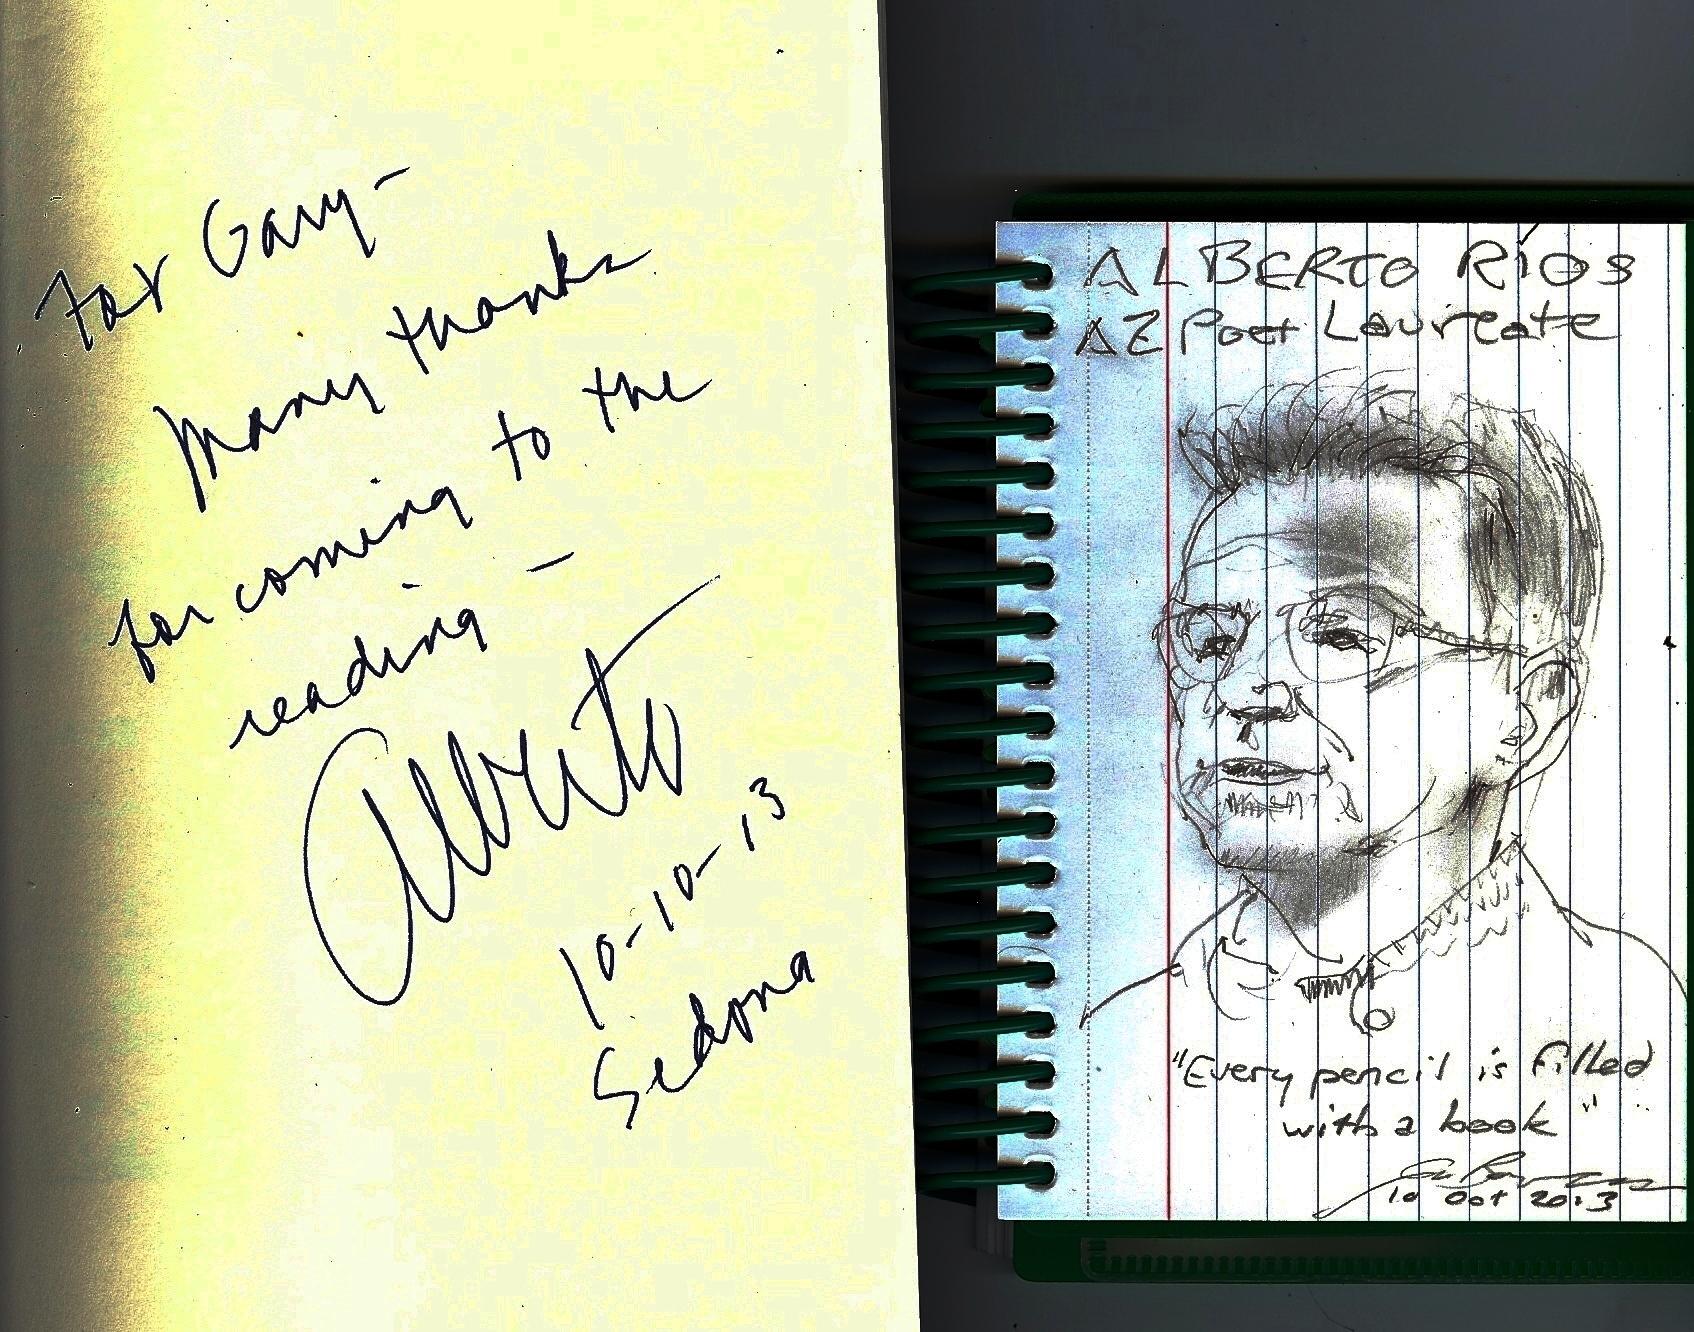 For Gary-
Many thanks
for coming to the
reading-
Alberto
10-10-13
Sedona
ALBERTO RÍOS
AZ Poet Laureate
"Every pencil is filled
with a book"
10 Oct 2013